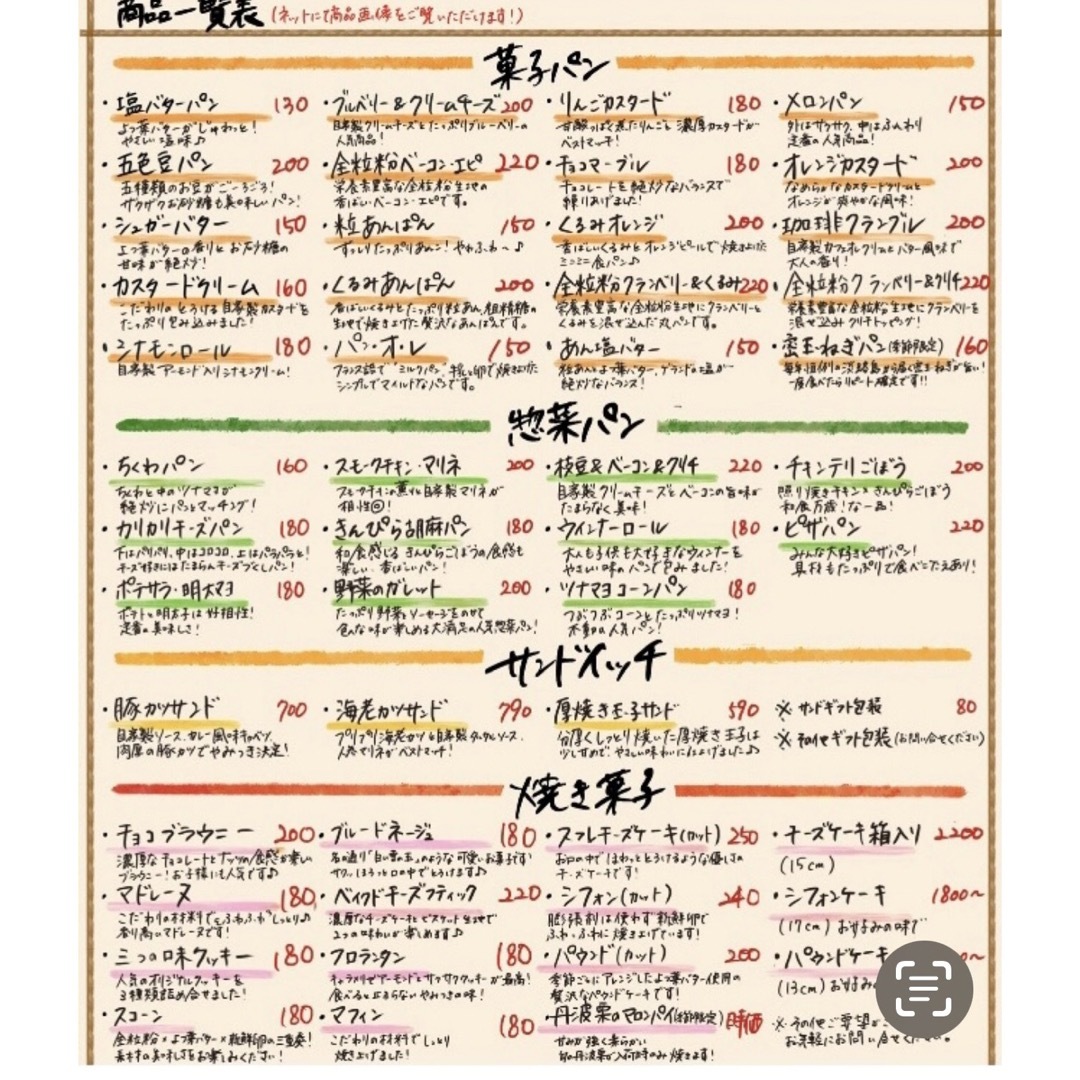 商品一覧表 (ネットにて商品画像をご覧いただけます!)
菓子パン
・塩バターパン 130
よつ葉バターがじゅわっと!
やさしい塩味♪
・ブルベリー&クリームチーズ 200
自家製クリームチーズとたっぷりブルーベリーの
人気商品!
・りんごカスタード 180
甘酸っぱく煮たりんごと濃厚カスタードが
ベストマッチ!
・メロンパン 150
外はサクサク、中はふんわり
定番の人気商品!
・五色豆パン 200
五種類のお豆がごーろごろ!
ザクザクお砂糖も美味しいパン!
・全粒粉ベーコン・エピ 220
栄養素豊富な全粒粉生地の
香ばいベーコン・エピです。
・チョコマーブル 180
チョコレートを絶妙なバランスで
練りあげました!
・オレンジカスタード 200
なめらかなカスタードクリームと
オレンジが爽やかな風味!
・シュガーバター 150
よつ葉バターの香りとお砂糖の
甘味が絶妙!
・粒あんぱん 150
ずっしりたっぷりあんこ! やわふわ〜♪
・くるみオレンジ 200
香ばしいくるみとオレンジピールで焼き上げた
ミニミニ食パン♪
・珈琲クランブル 200
自家製カフェオレクリームとバター風味で
大人の香り!
・カスタードクリーム 160
こだわりのとろける自家製カスタードを
たっぷり包み込みました!
・くるみあんぱん 200
香ばいくるみとたっぷり粒あん、粗精糖の
生地で焼き上げた贅沢なあんぱんです。
・全粒粉クランベリー&くるみ 220
栄養素豊富な全粒粉生地にクランベリーと
くるみを混ぜ込んだ丸パンです。
・全粒粉クランベリー&クリチ 220
栄養素豊富な全粒粉生地にクランベリーを
混ぜ込みクリチトッピング!
・シナモンロール 180
自家製アーモンド入りシナモンクリーム!
・パン・オ・レ 150
フランス語で"ミルクパン"、牛乳と卵で焼き上げた
シンプルでマイルドなパンです。
・あん塩バター 150
粒あんとよつ葉バター、ゲランドの塩が
絶妙なバランス!
・蜜玉ねぎパン(季節限定) 160
毎年恒例の淡路島から届く蜜玉ねぎが旨い!
一度食べたらリピート確定です!!
惣菜パン
・ちくわパン 160
ちくわと中のツナマヨが
絶妙にパンとマッチング!
・スモークチキン・マリネ 200
スモークチキンの薫りと自家製マリネが
相性◎!
・枝豆&ベーコン&クリチ 220
自家製クリームチーズとベーコンの旨味が
たまらなく美味!
・チキンテリごぼう 200
照り焼きチキン×きんぴらごぼう
和食万歳!な一品!
・カリカリチーズパン 180
下はパリパリ、中はコロコロ、上はパラパラと!
チーズ好きにはたまらんチーズづくしパン!
・きんぴら胡麻パン 180
和食感じるきんぴらごぼうの食感も
楽しい、香ばしいパン!
・ウィンナーロール 180
大人も子供も大好きなウィンナーを
やさしい味のパンで包みました!
・ピザパン 220
みんな大好きピザパン!
具材もたっぷりで食べごたえあり!
・ポテサラ・明太マヨ 180
ポテトと明太子は好相性!
定番の美味しさ!
・野菜のガレット 200
たっぷり野菜とソーセージをのせて
色んな味が楽しめる大満足の人気惣菜パン!
・ツナマヨコーンパン 180
つぶつぶコーンとたっぷりツナマヨ!
不動の人気パン!
サンドイッチ
・豚カツサンド 700
自家製ソース、カレー風味キャベツ、
肉厚の豚カツでやみつき決定!
・海老カツサンド 790
プリプリ海老カツと自家製タルタルソース、
人参マリネがベストマッチ!
・厚焼き玉子サンド 590
分厚くしっとり焼いた厚焼き玉子は
少し甘めで、やさしい味わいに仕上げました♪
※サンドギフト包装 80
※その他ギフト包装(お問い合せください)
焼き菓子
・チョコブラウニー 200
濃厚なチョコレートとナッツの食感が楽しい
ブラウニー!お子様にも人気です♪
・ブールドネージュ 180
名の通り「白い雪の玉」のような可愛いお菓子です!
サクッほろっと口の中でとろけます♪
・スフレチーズケーキ(カット) 250
お口の中でほわっととろけるような優しさの
チーズケーキです!
・チーズケーキ箱入り 2200
(15cm)
・マドレーヌ 180
こだわりの材料でふわふわ しっとり♪
香り高いマドレーヌです!
・ベイクドチーズスティック 220
濃厚なチーズケーキとビスケット生地で
2つの味わいが楽しめます♪
・シフォン(カット) 240
膨張剤は使わず新鮮卵で
ふわ・ふわに焼き上げています!
・シフォンケーキ 1800〜
(17cm) お好みの味で
・三つの味クッキー 180
人気のオリジナルクッキーを
3種類詰め合せました!
・フロランタン 180
キャラメリゼアーモンドとサクサククッキーが最高!
食べると止まらないやみつきの味!
・パウンド(カット) 200
季節ごとにアレンジしたよつ葉バター使用の
贅沢なパウンドケーキです!
・パウンドケーキ
(13cm) お好み
・スコーン 180
全粒粉×よつ葉バター×新鮮卵の三重奏!
素材の美味しさをお楽しみください!
・マフィン 180
こだわりの材料でしっとり
焼き上げました!
・丹波栗のマロンパイ(季節限定) 時価
甘みが強く柔らかい
旬の丹波栗が入荷時のみ焼きます!
※その他ご要望がご
お気軽にお問い合せください。